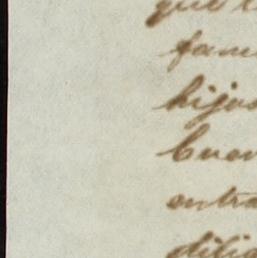 que l
fam
hijos
buen
entra
dilig